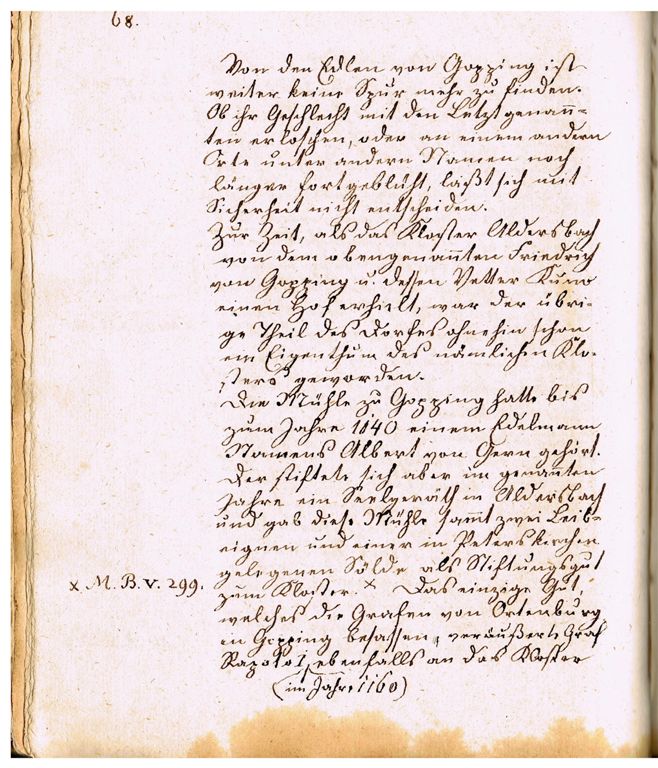 68.
Von den Edlen von Gopping ist
weiter keine Spur mehr zu finden.
Ob ihr Geschlecht mit den Letztgenan̄-
ten erloschen, oder an einem andern
Orte unter andern Namen noch
länger fortgeblüht, läßt sich mit
Sicherheit nicht entscheiden.
Zur Zeit, als das Kloster Aldersbach
von dem obengenan̄ten Friedrich
von Gopping u. dessen Vetter Kuno
einen Hof erhielt, war der übri-
ge Theil des Dorfes ohnehin schon
ein Eigenthum des nämlichen Klo-
sters geworden.
Die Mühle zu Gopping hatte bis
zum Jahre 1140 einem Edelmann
Namens Albert von Gern gehört.
Der stiftete sich aber im genan̄ten
Jahre ein Seelgeräth in Aldersbach
und gab diese Mühle sam̄t zwei Leib-
eignen und einer in Peterskirchen
gelegenen Sölde als Stiftungsgut
x M. B. V. 299. zum Kloster. x Das einzige Gut,
welches die Grafen von Ortenburg
in Gopping besassen, veräußerte Graf
Rapoto I, ebenfalls an das Kloster
(im Jahre 1160)